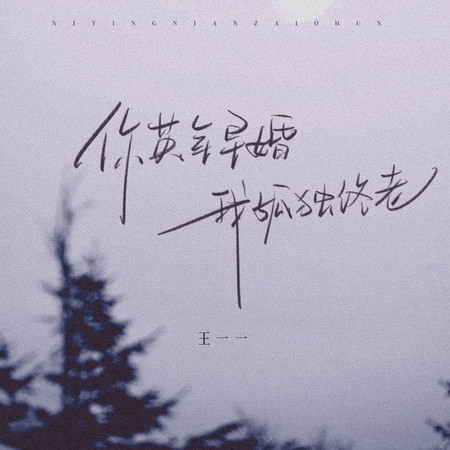 NIYINGNIANZAIOHUN
你英年早婚
我孤独终老
王一一